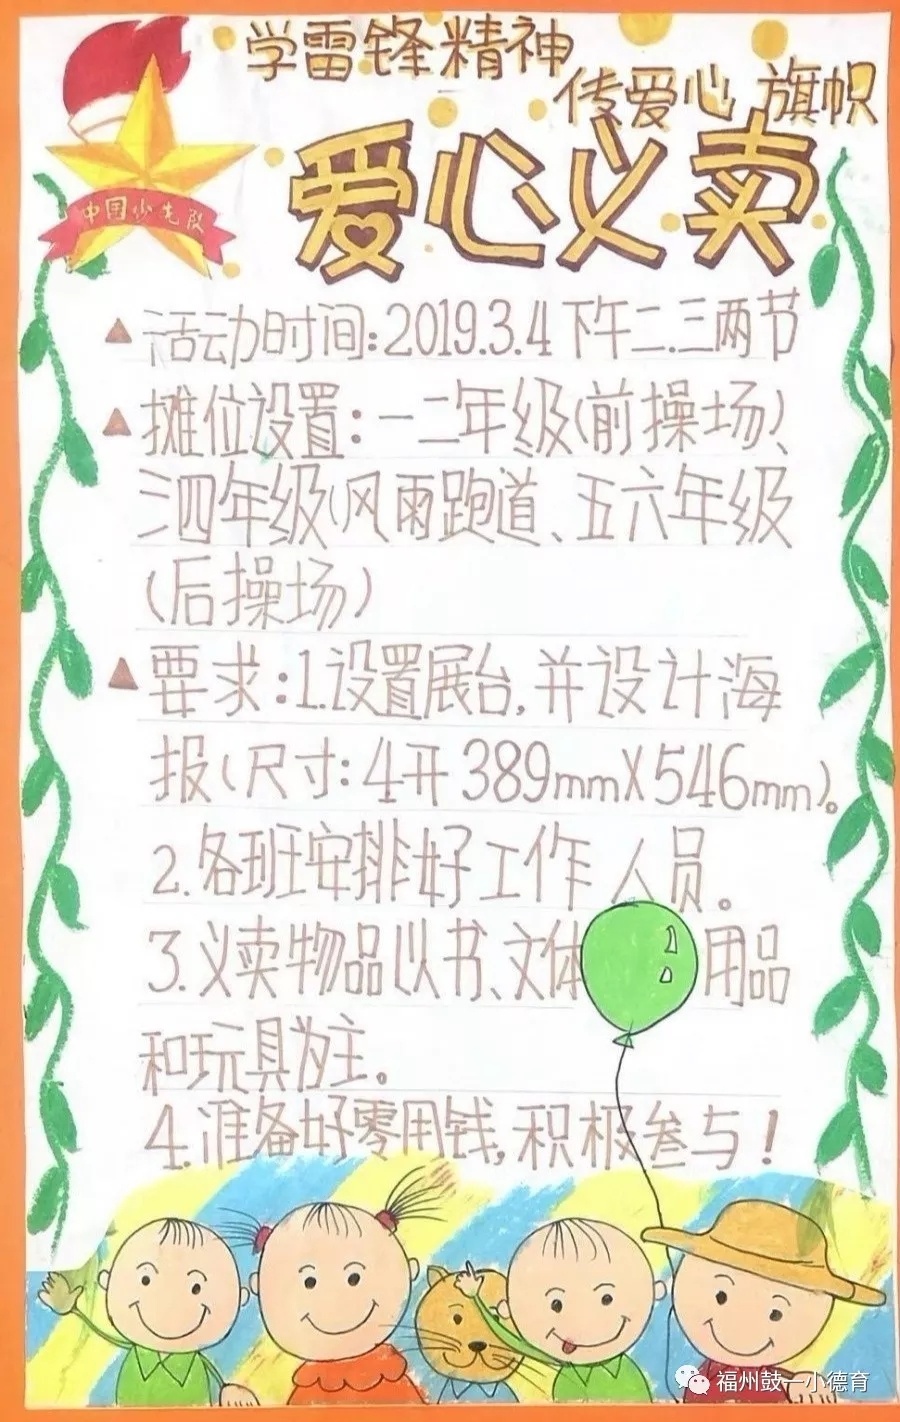 学雷锋精神
传爱心 旗帜
中国少先队
爱心义卖
活动时间:2019.3.4下午二.三两节
摊位设置:一二年级(前操场)、
三四年级(风雨跑道、五六年级
(后操场)
要求:1.设置展台,并设计海
报(尺寸:4开389mmX546mm)。
2.各班安排好工作人员。
3.义卖物品以书、文体用品
和玩具为主。
4.准备好零用钱,积极参与!
福州鼓一小德育